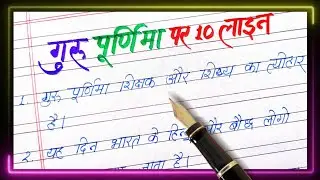 गुरु पूर्णिमा पर 10 लाइन
1. गुरु पूर्णिमा शिक्षक और शिष्य का त्यौहार
है।
2. यह दिन भारत के और बौद्ध लोगो
जाता है।